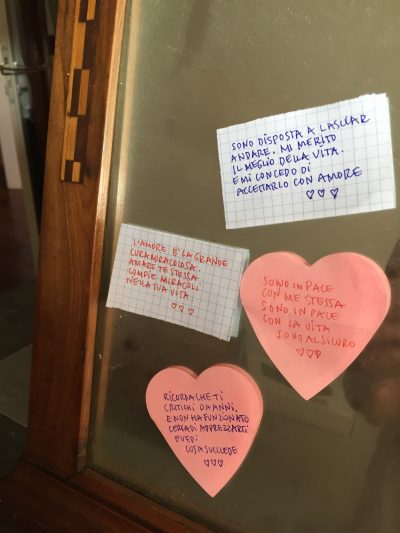 SONO DISPOSTA A LASCIAR
ANDARE. MI MERITO
IL MEGLIO DELLA VITA.
E MI CONCEDO DI
ACCETTARLO CON AMORE
♡♡♡
L'AMORE È LA GRANDE
CURA MIRACOLOSA.
AMARE TE STESSA
COMPIE MIRACOLI
NELLA TUA VITA
♡♡♡
SONO IN PACE
CON ME STESSA
SONO IN PACE
CON LA VITA
SONO AL SICURO
♡♡♡
RICORDA CHE TI
CRITICHI DA ANNI,
E NON HA FUNZIONATO
CERCA DI APPREZZARTI
E VEDI
COSA SUCCEDE
♡♡♡